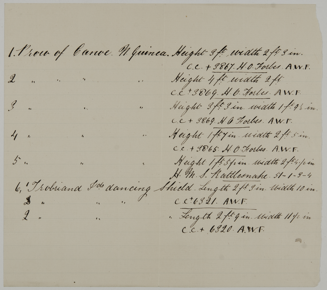 1 Prow of Canoe N Guinea. Height 3ft width 2ft 3 in.
CC + 3867 H O Forbes A.W.F.
2 " " " " Height 4ft width 2ft
CC + 3869 H. O. Forbes A.W.F.
3 " " " Height 3ft 3 in width 1ft 9½ in
CC + 3869 H O Forbes A.W.F.
4 " " " Height 1ft 7 in width 2ft 5 in
CC + 3865 H. O Forbes A.W.F.
5 " " " Height 1ft width
H. M. S. Rattlesnake 51-1-3-4
6, Trobriand dancing Shield Length 2ft 3 in width 10 in
" " CC 6321 A.W.F.
2 " " " Length 2ft 9 in width 11½ in
CC + 6320 A.W.F.